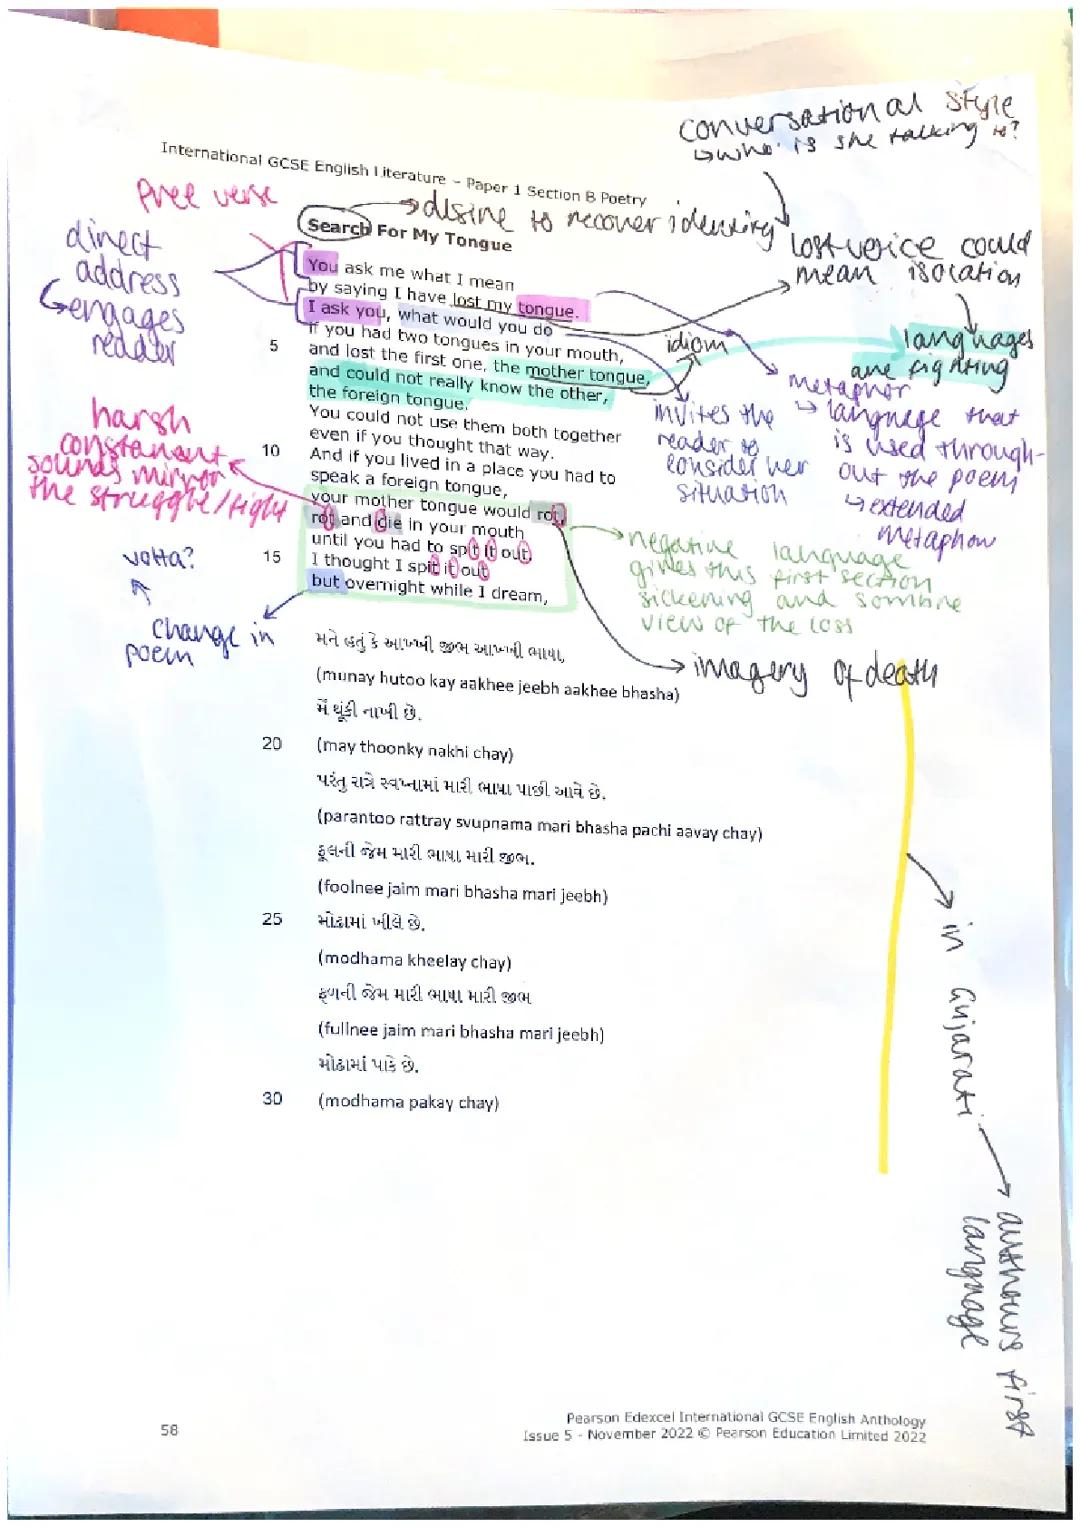 conversational style
↳who is she talking to?
International GCSE English Literature – Paper 1 Section B Poetry
free verse
→desire to recover identity
Search For My Tongue
direct
address
↳engages
reader
lost voice could
mean isolation
languages
are fighting
You ask me what I mean
by saying I have lost my tongue.
I ask you, what would you do
if you had two tongues in your mouth,
5 and lost the first one, the mother tongue,
and could not really know the other,
the foreign tongue.
You could not use them both together
even if you thought that way.
10 And if you lived in a place you had to
speak a foreign tongue,
your mother tongue would rot,
rot and die in your mouth
until you had to spit it out.
15 I thought I spit it out
but overnight while I dream,
idiom
metaphor
↳ language that
is used through-
out the poem
↳extended
metaphor
invites the
reader to
consider her
situation
harsh
constanant
sounds mirror
the struggle/fight
negative language
gives this first section
sickening and sombre
view of the loss
volta?
change in
poem
imagery of death
મને હતું કે આખ્ખી જીભ આખ્ખી ભાષા,
(munay hutoo kay aakhee jeebh aakhee bhasha)
મેં થૂંકી નાખી છે.
20 (may thoonky nakhi chay)
પરંતુ રાત્રે સ્વપ્નામાં મારી ભાષા પાછી આવે છે.
(parantoo rattray svupnama mari bhasha pachi aavay chay)
ફૂલની જેમ મારી ભાષા મારી જીભ.
(foolnee jaim mari bhasha mari jeebh)
25 મોઢામાં ખીલે છે.
(modhama kheelay chay)
ફળની જેમ મારી ભાષા મારી જીભ
(fullnee jaim mari bhasha mari jeebh)
મોઢામાં પાકે છે.
30 (modhama pakay chay)
in Gujarati
authours first
language
58
Pearson Edexcel International GCSE English Anthology
Issue 5 – November 2022 © Pearson Education Limited 2022